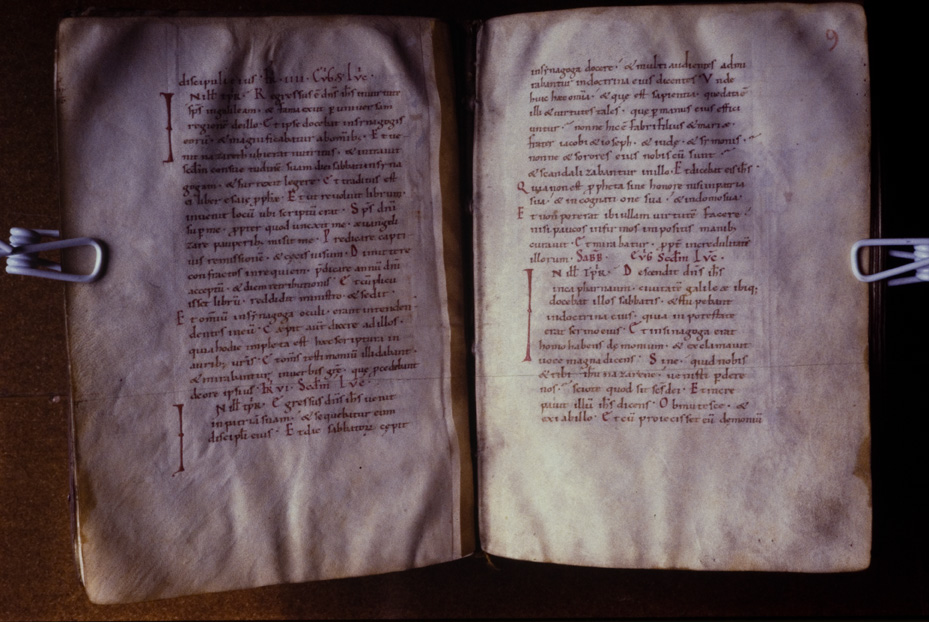 discipulus eius · F̄R̄ · IIII · EVG̃ S̃ LVC̃ ·
N illo tp̄r · Regressus ē dn̄s ih̄s in uirtute
sp̄s ingalileam · & fama exiit p uniuersam
regionē deillo · Et ipse docebat insynagogis
eorū · & magnificabatur abomnib; · Et ue-
nit nazareth ubi erat nutritus · & intrauit
scdm consue tudinē suam die sabbati insyna
gogam · & surrexit legere · Et traditus est
ei liber esaię pphę · Et ut reuoluit librum ·
inuenit locū ubi scriptū erat · Sp̄s dn̄i
sup me · ppter quod uncxit me · æuangeli
zare pauperib; misit me · Predicare capti
uis remissionē · & cęcis uisum · Dimittere
confractos inrequiem · pdicare annū dn̄i
acceptū · & diem retributionis · Et cū plicu
isset librū · reddidit ministro · & sedit ·
Et omiū insynagoga oculi · erant intenden
dentes ineū · Cœpit aut̄ dicere adillos ·
quia hodie impleta est hæc scriptura in
aurib; uris · Et om̄s testimoniū illi dabant ·
& mirabantur inuerbis grę̄ · quę pcedebant
deore ipsius · F̄R̄ VI · Scdm̄ LVC̄ ·
N illo tp̄r · Egressus dn̄s ih̄s uenit
inpatriā suam · & sequebantur eum
discipli eius · Et die sabbatorū cepit
9
insynagoga docere · & multi audientes admi
rabantur indoctrina eius dicentes · Vnde
huic hæc omia · & que est sapientia · quę data ē
illi · & uirtutes tales · que p manus eius effici
untur · nonne hic ē fabri filius & mariæ ·
frater iacobi & ioseph · & iudę · & symonis ·
nonne & sorores eius nobis cū sunt ·
& scandali zabantur inillo · Et dicebat eis ih̄s ·
Quia non est ppheta sine honore nisi inpatria
sua · & in cognati one sua · & indomo sua ·
Et non poterat ibi ullam uirtutē facere ·
nisi paucos infirmos impositis manib;
curauit · Et mirabatur · ppt̄ incredulitatē
illorum · SABB̄ · EVG̃ Scdm̄ LVC̄ ·
I N illo tp̄r · Descendit dn̄s ih̄s
incapharnaum · ciuitatē galileæ ibiq;
docebat illos sabbatis · & stupebant
indoctrina eius · quia in potestate
erat sermo eius · Et insinagoga erat
homo habens demonium · & exclamauit
uoce magna dicens · Sine · quid nobis
& tibi ih̄u nazarene · uenisti pdere
nos · scio te quod sis s̄c̄s dei · Et incre
pauit illū ih̄s dicens · Obmutesce · &
exi abillo · Et cū proiecisset eū demoniū